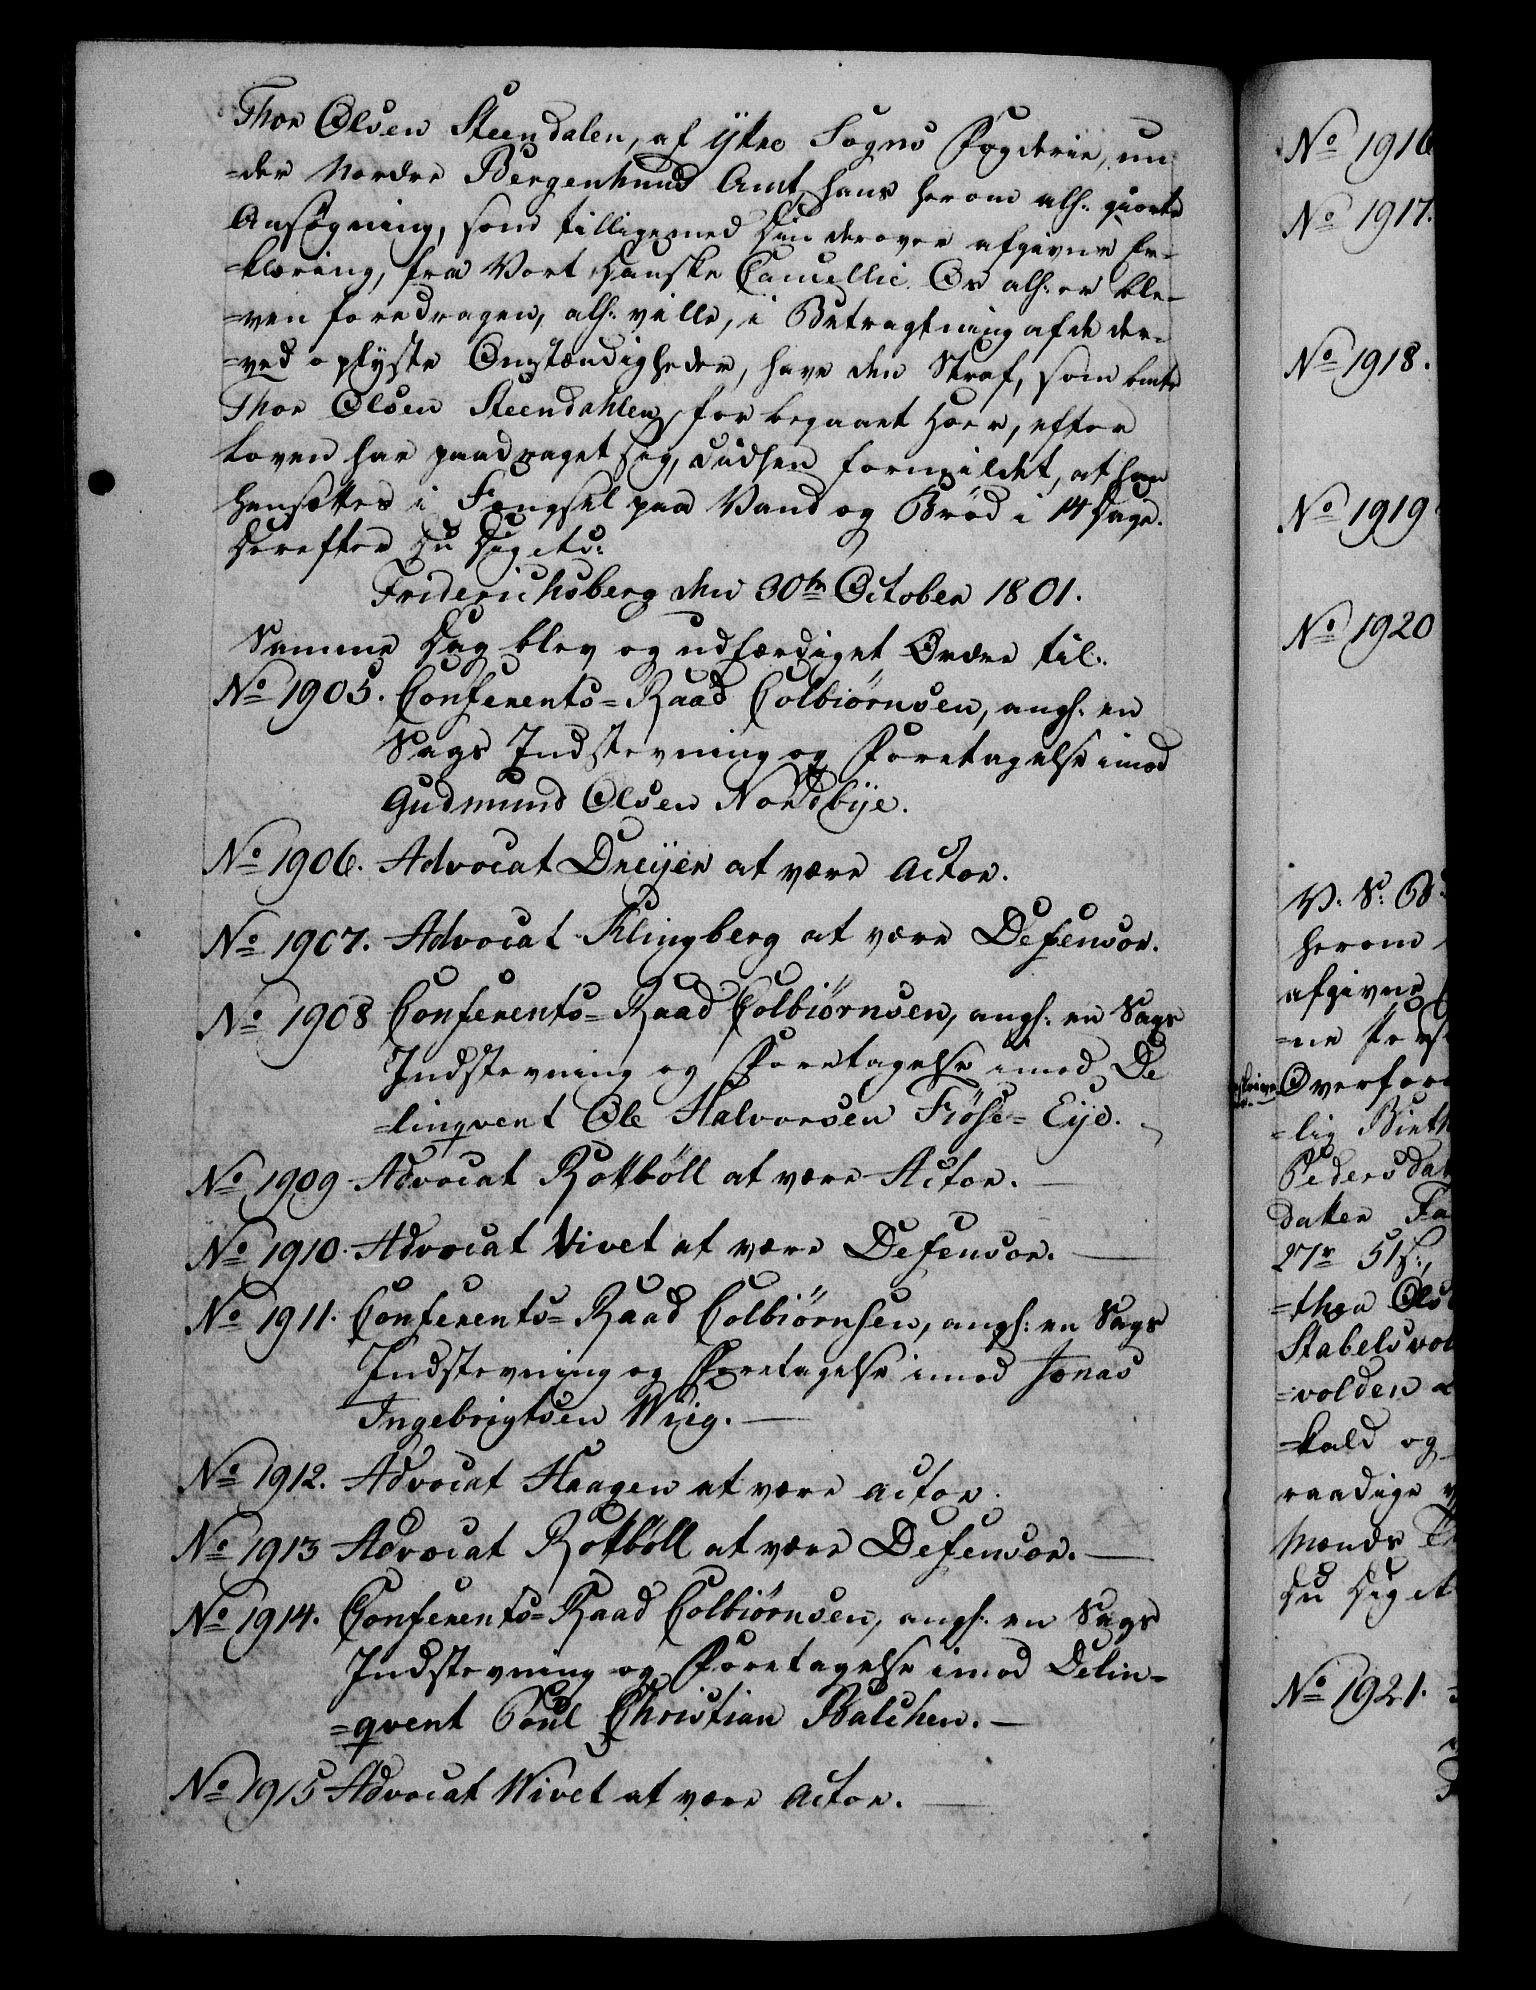 Thor Olsen Steendalen, af ÿttre Sogns Fogderie, un
=der Nordre Bergenhuus Amt, hans herom alh: giorte
Ansøgning, som tilligemed din derover afgivne Er=
=klæring, fra Vort Danske Cancellie Os alh: er ble=
=ven foredragen, alh: ville, i Betragtning af de der=
=ved oplyste Omstændigheder, have den Straf, som bmte
Thor Olsen Steendahlen, for begaaet Hoer, efter
Loven har paadraget sig, saadan formildet, at han
hensættes i Fængsel paa Vand og Brød i 14 Dage.
Derefter Du Dig etc:
Friderichsberg den 30te October 1801.
Samme Dag blev og udfærdiget Ordre til:
No 1905. Conferents=Raad Colbiørnsen, angh: en
Sags Indstevning og Foretagelse imod
Gudmund Olsen Nordbÿe.
No 1906. Advocat Dreÿer at være Actor.
No 1907. Advocat Klingberg at være Defensor.
No 1908 Conferents=Raad Colbiørnsen, angh: en Sags
Indstevning og Foretagelse imod De
=linqvent Ole Halvorsen Fiøse=Eÿe.
No 1909 Advocat Rottbøll at være Actor.
No 1910. Advocat Vivet at være Defensor.
No 1911. Conferents=Raad Colbiørnsen, angh: en Sags
Indstevning og Foretagelse imod Jonas
Ingebrigtsen Wiig.
No 1912. Advocat Haagen at være Actor.
No 1913 Advocat Rottbøll at være Defensor.
No 1914. Conferents=Raad Colbiørnsen, angh: en Sags
Indstevning og Foretagelse imod Delin=
=qvent Poul Christian Balchen.
No 1915 Advocat Wivet at være Actor.
No 1916
No 1917.
No 1918.
No 1919
No 1920
V: S: G
herom
afgivne
=ne
Overfor
=lig
Peders dat
datter
27r 51
=thea Ols
Stabelsvol
=volden
=kald og
raadige
Mands
Du Dig et
No 1921.